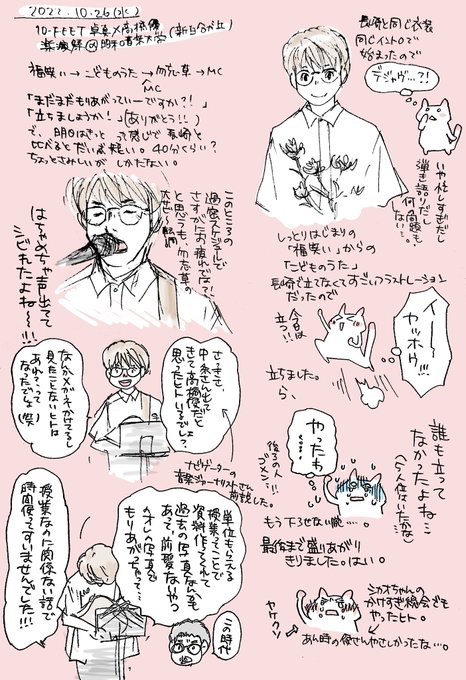 2022.10.26(水)
10-FEET 卓真×高橋優
楽演祭@昭和音楽大学(新百合ヶ丘)
福笑い→こどものうた→勿忘草→MC
MC
「まだまだもりあがっていーですか?!」
「立ちましょうか!」(ありがとう!!)
で、明日はきっと って感じで長崎と
比べるとだいぶ短い。40分くらい?
ちょっとさみしいが しかたない。
長崎と同じ衣装
同じイントロで
始まったので
デジャヴ…?!
いや忙しすぎだし
弾き語りだし
何の問題も
ない…。
しっとりはじまりの
「福笑い」からの
「こどものうた」
長崎で立てなくてすごいフラストレーション
だったので
今日は
立つ!!
イーー
ヤッホウ
!!!
立ちました。
ら、
ここんところの
過密スケジュールで
さすがにお疲れでは?!
と思うも、勿忘草の
大サビ転調
はちゃめちゃ声出てて
シビれたよね〜〜!!!
さっきさ、
中条さん出てきて
高橋優だと
思ったヒトいるでしょ?
なんかメガネかけてるし
見たことないヒトは
あれ?って
なったでしょ(笑)
ナビゲーターの
音楽ジャーナリストさん
前説した。
誰も立って
なかったよね…
(5人位はいたかな)
やったわ
…。
後ろの人
ゴメン…!
もう下ろせない腕…。
最後まで盛りあがり
きりました。はい。
単位もらえる
授業ってことで
資料作ってくれて
過去の写真なんかも
あって、前髪ないやつ
(オレの)写真を
もりあがっちゃって…
この時代
授業なのに関係ない話で
時間使ってすいませんでした!!!
シカオちゃんの
かけすぎ線会でも
やったヒト。
ヤケクソ
あん時の優さんやさしかったな…。